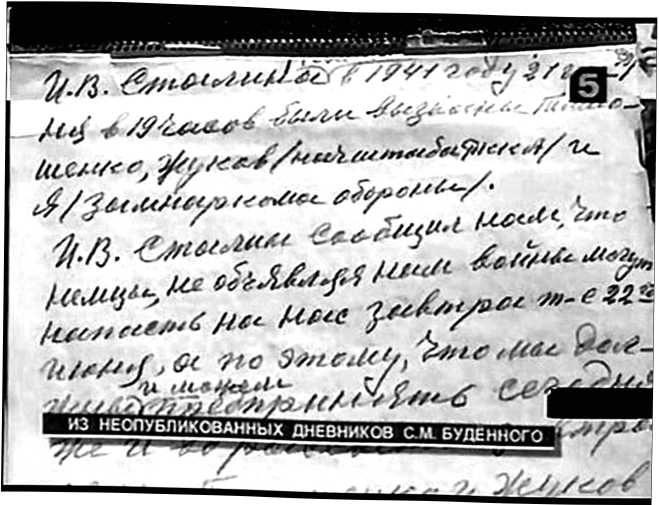 И.В. Сталина в 1941 году 21 го
5
ня в 19 часов были вызваны Тимо-
шенко, Жуков /начштаба РККА/ и
Я /замнаркома обороны/.
И.В. Сталин сообщил нам, что
немцы, не объявляя нам войны могут
напасть на нас завтра т-е 22 го
июня, а по этому, что мы дол-
и можем
жны предпринять сегодня
ИЗ НЕОПУБЛИКОВАННЫХ ДНЕВНИКОВ С.М. БУДЕННОГО
же и
и Жуков